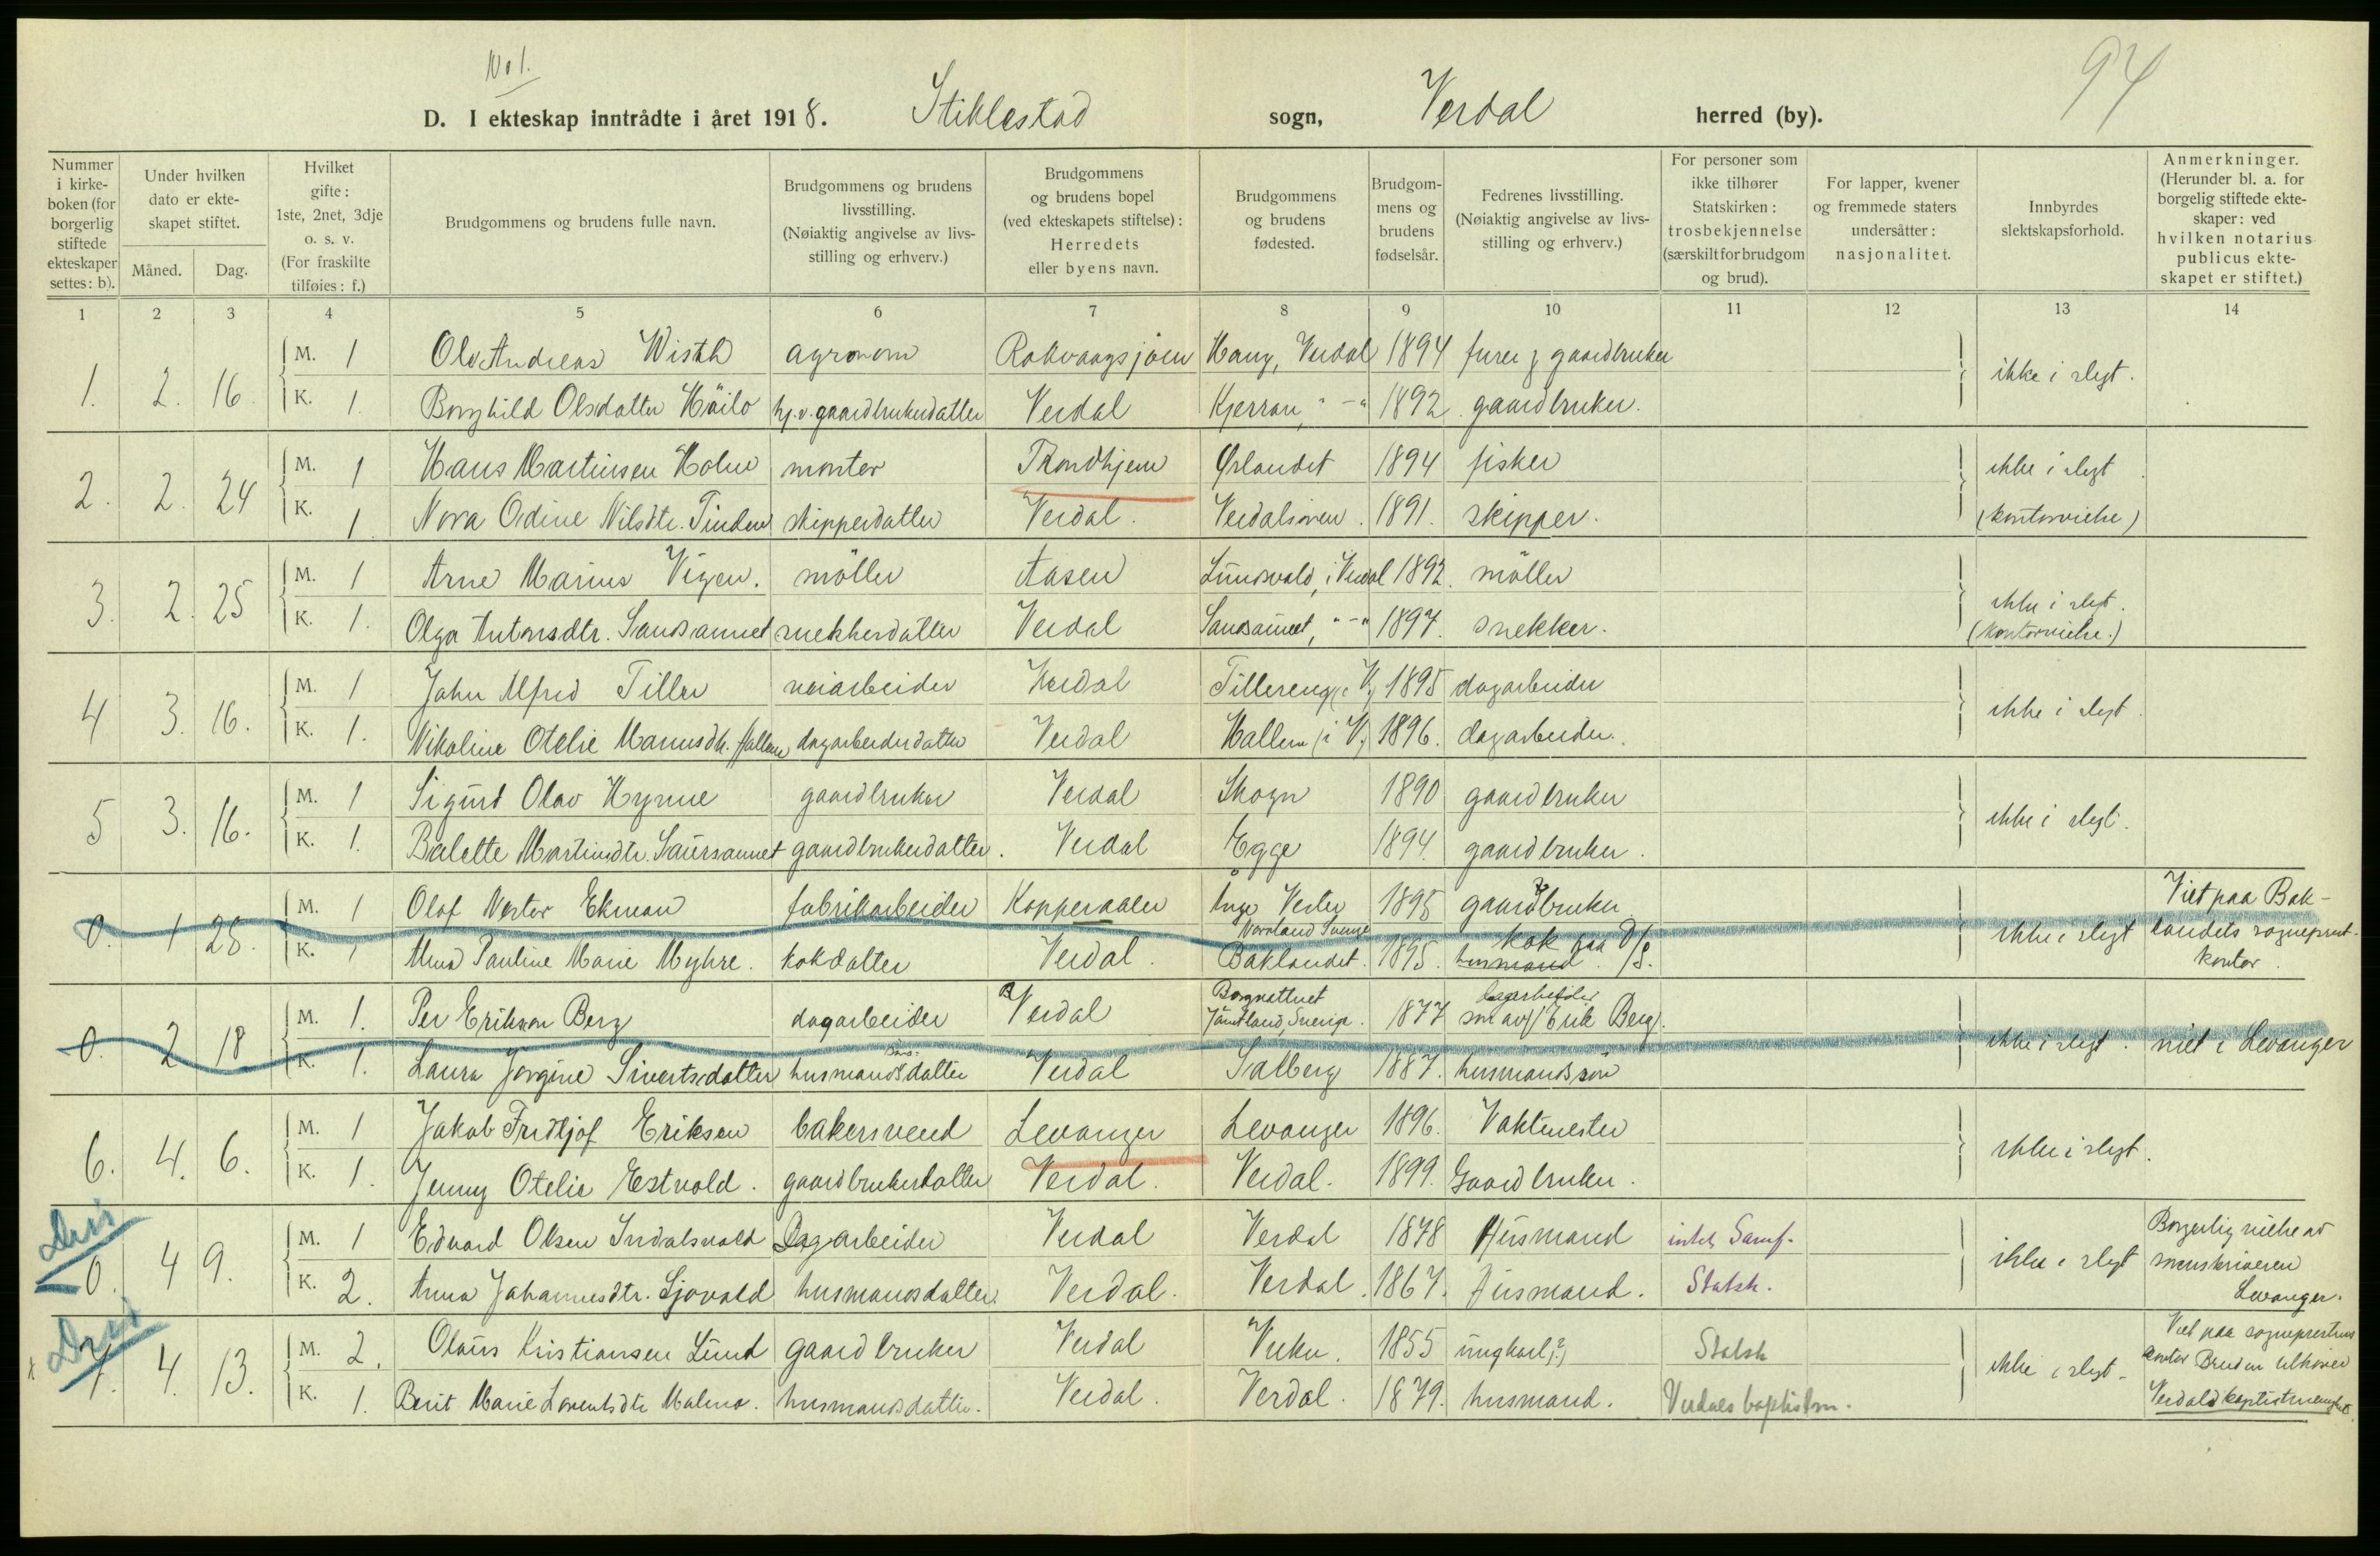 No 1.
94
D. I ekteskap inntrådte i året 1918. Stiklestad sogn, Verdal herred (by).
Nummer i kirke-boken (for borgerlig stiftede ekteskaper settes: b).
Under hvilken dato er ekte-skapet stiftet.
Måned. Dag.
Hvilket gifte: 1ste, 2net, 3dje o. s. v. (For fraskilte tilføies: f.)
Brudgommens og brudens fulle navn.
Brudgommens og brudens livsstilling. (Nøiaktig angivelse av livs-stilling og erhverv.)
Brudgommens og brudens bopel (ved ekteskapets stiftelse): Herredets eller byens navn.
Brudgommens og brudens fødested.
Brudgom-mens og brudens fødselsår.
Fedrenes livsstilling. (Nøiaktig angivelse av livs-stilling og erhverv.)
For personer som ikke tilhører Statskirken: trosbekjennelse (særskilt for brudgom og brud).
For lapper, kvener og fremmede staters undersåtter: nasjonalitet.
Innbyrdes slektskapsforhold.
Anmerkninger. (Herunder bl. a. for borgelig stiftede ekte-skaper: ved hvilken notarius publicus ekte-skapet er stiftet.)
1 2 3 4 5 6 7 8 9 10 11 12 13 14
1. 2. 16. M. 1 Olv Andreas Wisth agronom Haug, Verdal 1894 gaardbruker ikke i slegt.
K. 1. Borghild Olsdatter Häilo hj.v. gaardbrukerdatter Verdal 1892. gaardbruker.
2. 2. 24 M. 1 Hans Martinsen Holm montør Trondhjem Ørlandet 1894 fisker ikke i slegt
K. 1. Nora Odine Nilsdtr. Tinden skipperdatter Verdal. Verdalsøren. 1891. skipper. (kontorvielse)
3. 2. 25 M. 1 Arne Marius Vigen. möller Aasen i Verdal 1892. möller ikke i slegt.
K. 1. Olga Antonsdtr. Sandsaunet snekkerdatter Verdal Sandsaunet, "-" 1897. snekker. (kontorvielse.)
4 3. 16. M. 1 John Alfred Tiller veiarbeider Verdal Tillereng (i V.) 1895 dagarbeider ikke i slegt.
K. 1. Nikoline Otelie Mariusdtr. Hallem dagarbeiderdatter Verdal Hallem (i V.) 1896. dagarbeider.
5 3. 16. M. 1 Sigurd Olav Hynne gaardbruker Verdal Skogn 1890 gaardbruker ikke i slegt.
K. 1. Balette Martinsdtr. Saursaunet gaardbrukerdatter. Verdal Egge 1894. gaardbruker.
0. 1 28. M. 1 Olof Nestor Ekman fabrikarbeider Kopperaaen Vermland Sverige 1895 gaardbruker ikke i slegt Viet paa Bak-landets sogneprest-kontor.
K. 1 Alma Pauline Marie Myhre. kokdatter Verdal. Baklandet. 1895. husmand kok paa D/S.
0. 2 18 M. 1. Per Erikson Berg dagarbeider Verdal Borgvattnet Jämtland, Sverige. 1877 søn av (Erik Berg). ikke i slegt. viet i Levanger
K. 1. Laura Jørgine Sivertsdatter husmandsdatter Verdal Salberg 1887. husmandssøn
6. 4. 6. M. 1 Jakob Fridtjof Eriksen bakersvend Levanger Levanger 1896. Vaktmester ikke i slegt.
K. 1. Jenny Otelie Estvold. gaardbrukerdatter Verdal. Verdal. 1899. Gaardbruker.
0. 4 9. M. 1 Edvard Olsen Indalsvald Dagarbeider Verdal Verdal 1878 Husmand intet Samf. ikke i slegt Borgerlig vielse av sorenskriveren Levanger.
K. 2. Anna Johannesdtr. Sjøvold husmandsdatter. Verdal. Verdal. 1867. Husmand. Statsk.
7. 4. 13. M. 2. Olaus Kristiansen Lund gaardbruker Verdal Vuku. 1855 ungkarl (?) Statsk ikke i slegt. Viet paa sogneprestens kontor Bruden tilhører Verdals baptistmenighet.
K. 1. Berit Marie Lorentsdtr Malmo. husmandsdatter. Verdal. Verdal. 1879. husmand. Verdals baptistm.